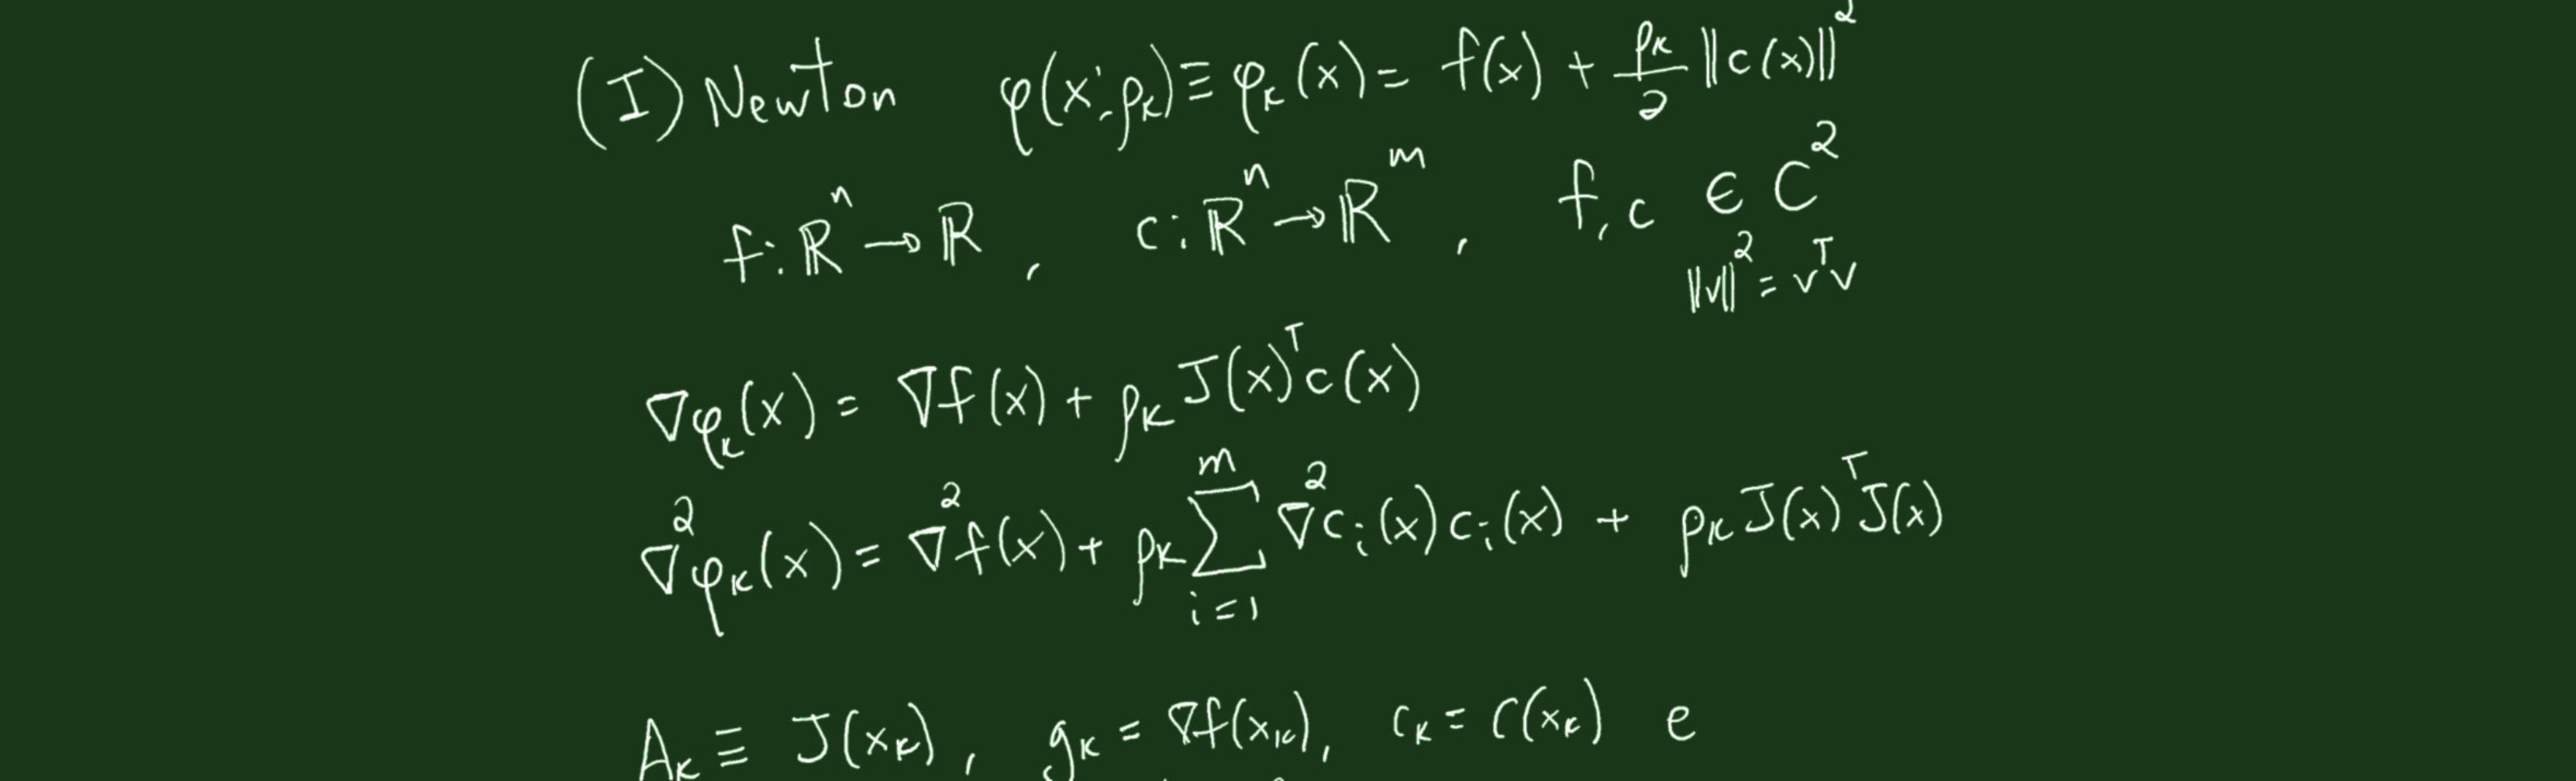 (I) Newton φ(x;ρₖ) ≡ φₖ(x) = f(x) + ρₖ/2 ‖c(x)‖²
f: ℝⁿ → ℝ , c: ℝⁿ → ℝᵐ , f, c ∈ C²
‖v‖² = vᵀv
∇φₖ(x) = ∇f(x) + ρₖ J(x)ᵀc(x)
∇²φₖ(x) = ∇²f(x) + ρₖ ∑ᵢ₌₁ᵐ ∇²cᵢ(x)cᵢ(x) + ρₖ J(x)ᵀJ(x)
Aₖ ≡ J(xₖ), gₖ = ∇f(xₖ), cₖ = c(xₖ) e